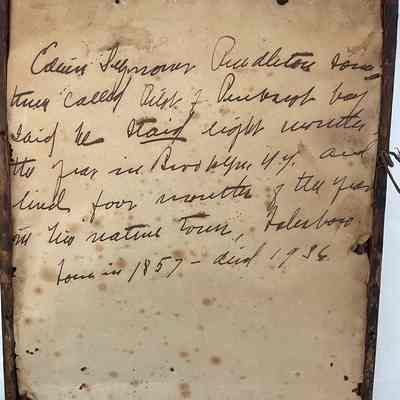 Edwin Seymour Pendleton some-
times called Pirate of Penobscot bay
said he staid eight months
the year in Brooklyn N.Y. and
lived four months of the year
in his native town, Islesboro
born in 1857 - died 1936